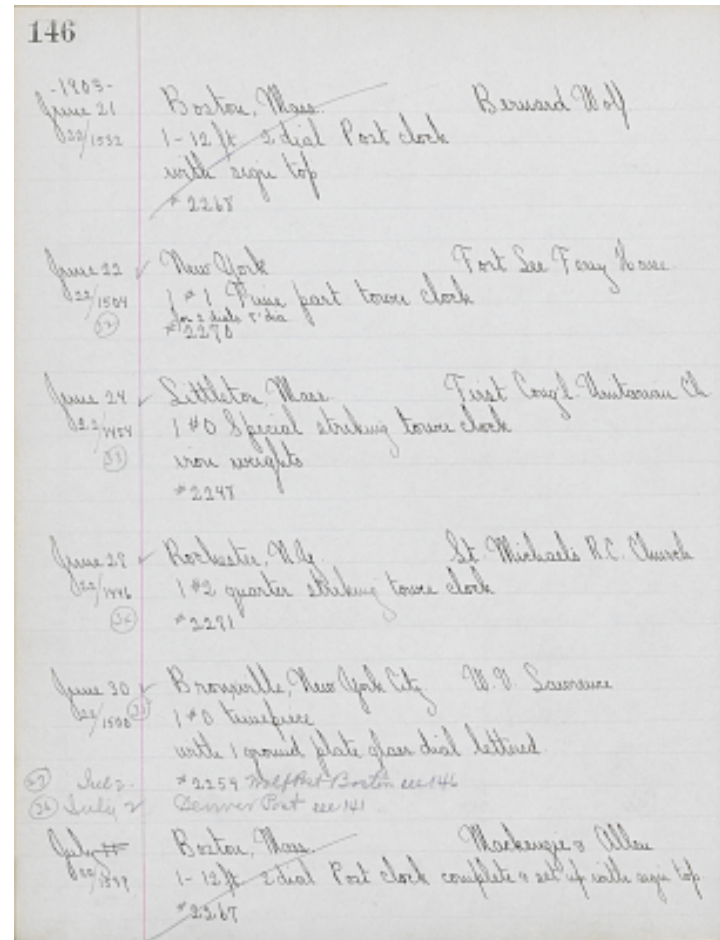 146
-1903-
June 21 Boston, Mass. Bernard Wolf
22/1532 1-12 ft 2 dial Post clock
with sign top
#2268
June 22 ✓ New York Fort Lee Ferry House
22/1504 1 #1 Time part tower clock
for 2 dials 5' dia
#2270
June 24 ✓ Littleton, Mass. First Cong'l. Unitarian Ch
22/1454 1 #0 Special striking tower clock
iron weights
#2248
June 27 ✓ Rochester, N.Y. St. Michaels R.C. Church
1 #2 quarter striking tower clock
June 30 ✓ Bronxville, New York City W. V. Lawrence
22/1500 1 #0 timepiece
with 1 ground plate glass dial lettered
Jul 2 #2259 Wolf Post Boston see 146
July 2 Denver Post see 141
July Boston, Mass. Mackenzie & Allen
1-12 ft 2 dial Post clock complete & set up with sign top
#2267